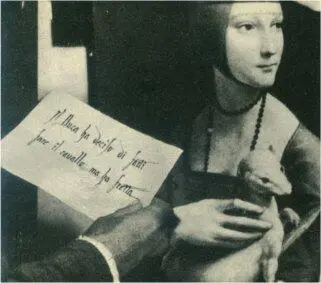 Il Duca ha deciso di farti
fare il cavallo ma ha fretta